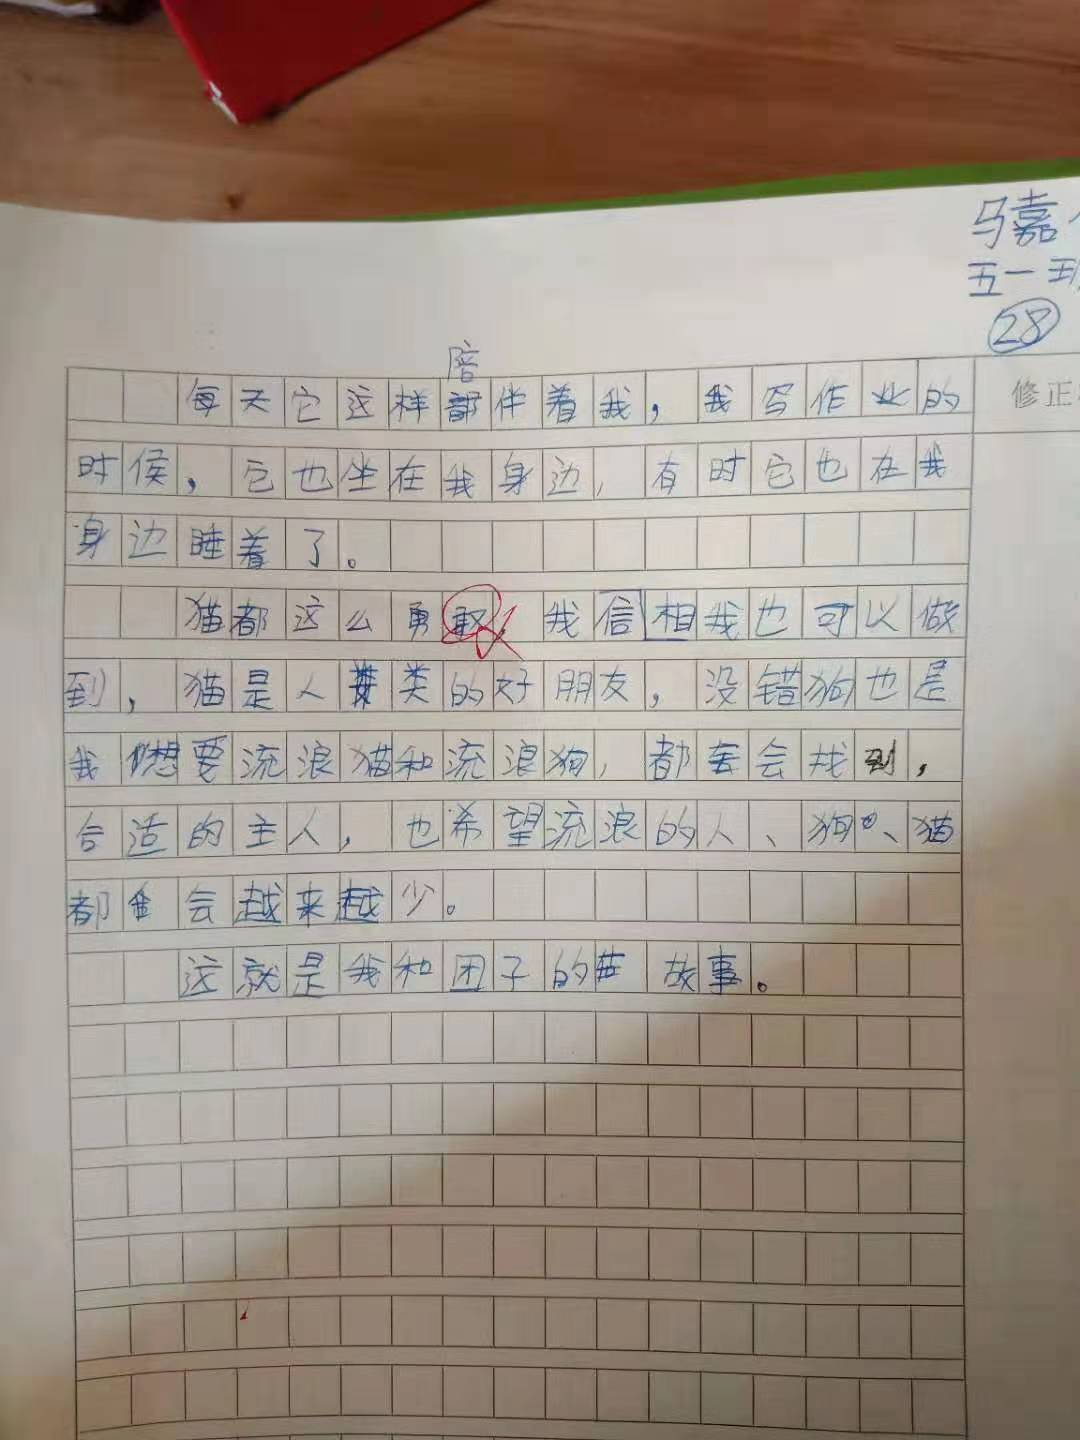 马嘉
五一班
28
陪
每天它这样部伴着我，我写作业的
修正
时候，它也坐在我身边，有时它也在我
身边睡着了。
猫都这么勇敢，我信相我也可以做
到，猫是人类的好朋友，没错狗也是
我想要流浪猫和流浪狗，都会找到，
合适的主人，也希望流浪的人、狗、猫
都会越来越少。
这就是我和团子的故事。